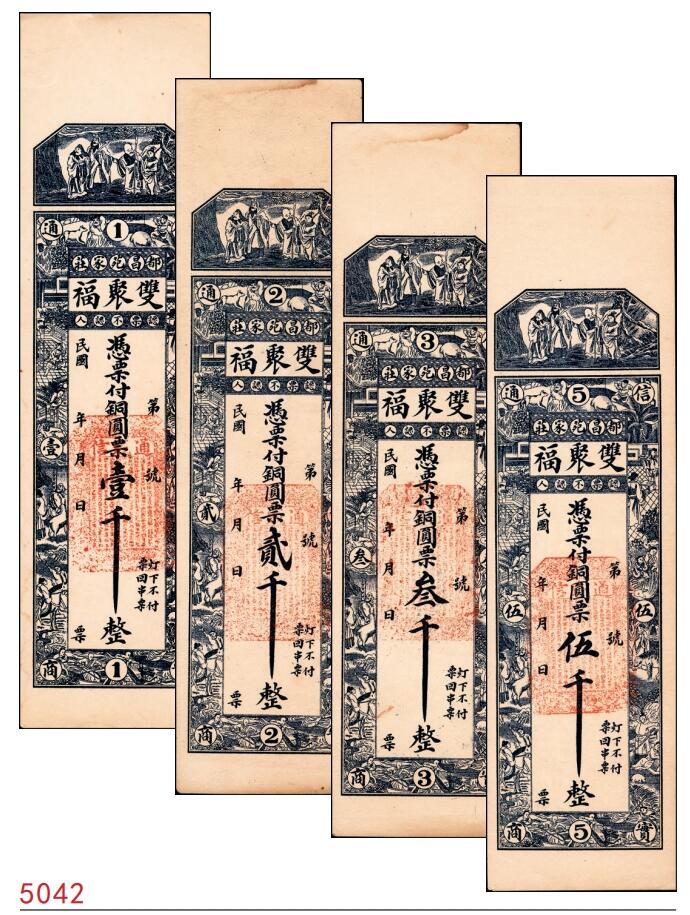 通 1
都昌家莊
雙聚福
認票不認人
第 號
憑票付銅圓票壹千整
民國 年 月 日
灯下不付
票回串票
票
壹
商 1
通 2
都昌家莊
雙聚福
認票不認人
第 號
憑票付銅圓票貳千整
民國 年 月 日
灯下不付
票回串票
票
貳
商 2
通 3
都昌家莊
雙聚福
認票不認人
第 號
憑票付銅圓票叁千整
民國 年 月 日
灯下不付
票回串票
票
叁
商 3
通 5 信
都昌家莊
雙聚福
認票不認人
第 號
憑票付銅圓票伍千整
民國 年 月 日
灯下不付
票回串票
票
伍 伍
商 5 實
5042